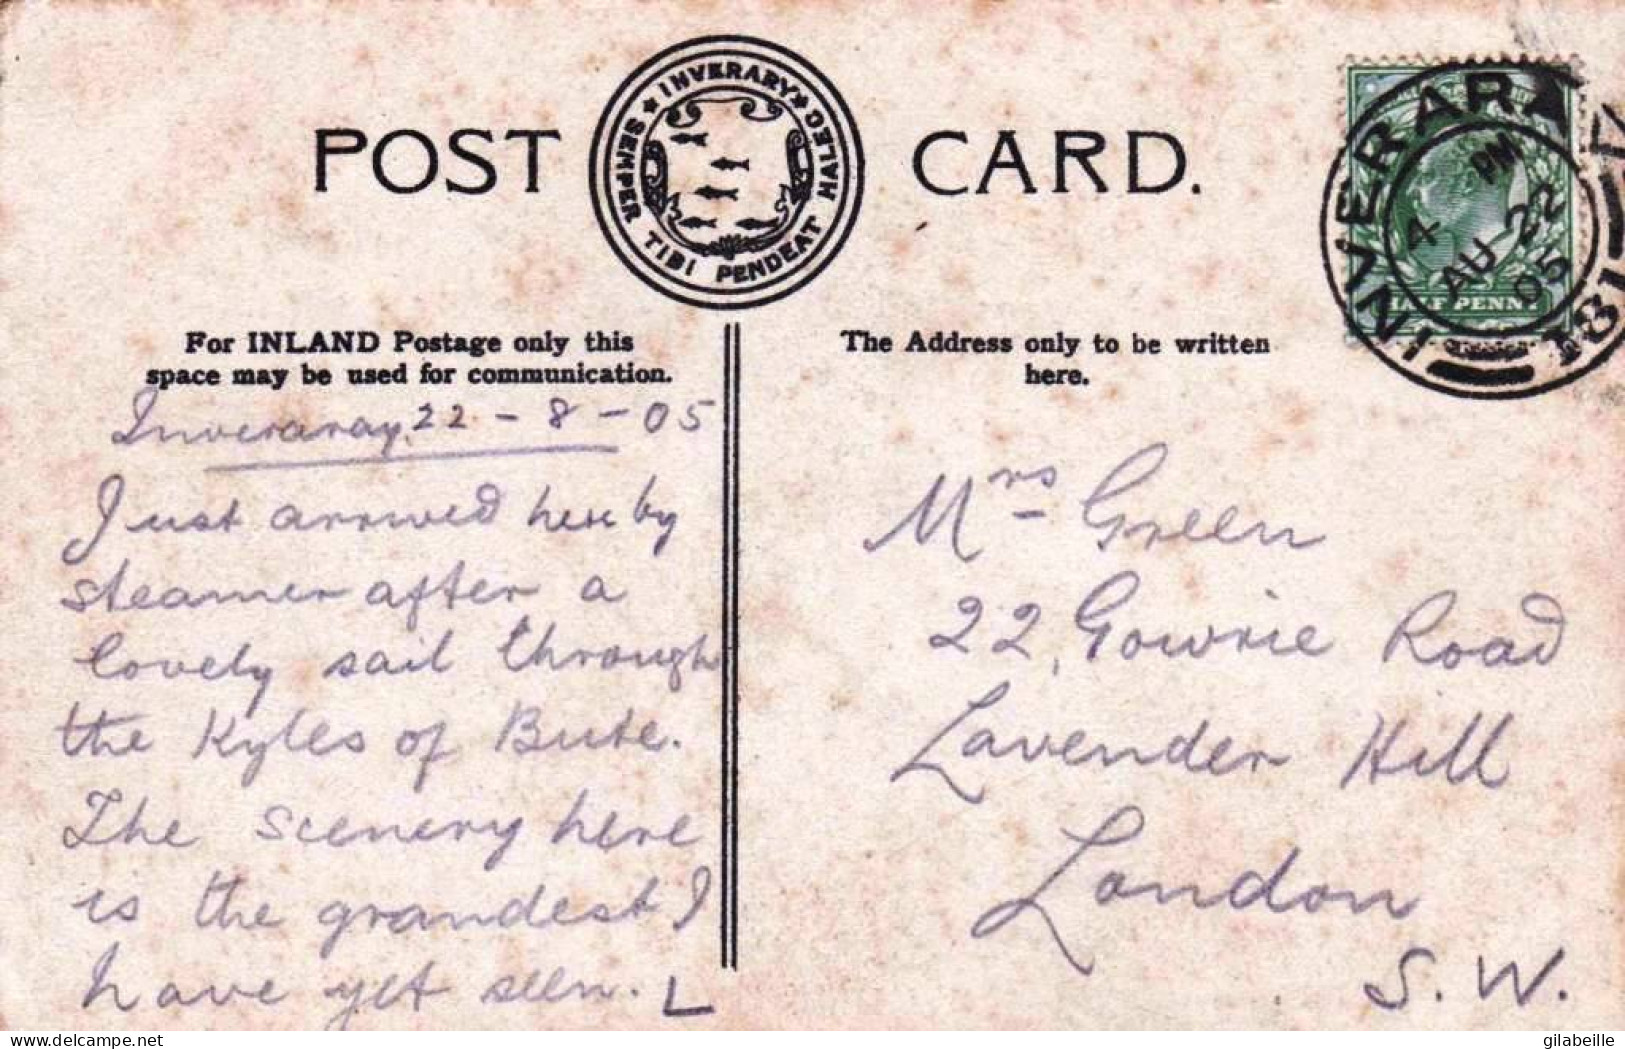 POST CARD.
★ INVERARY ★ SEMPER TIBI PENDEAT HALEC
INVERARA
4 PM
AU 22
05
181
HALF PENNY
For INLAND Postage only this
space may be used for communication.
The Address only to be written
here.
Inveraray, 22 - 8 - 05
Just arrived here by
steamer after a
lovely sail through
the Kyles of Bute.
The scenery here
is the grandest I
have yet seen. L
Mrs Green
22, Gowrie Road
Lavender Hill
London
S. W.
gilabeille